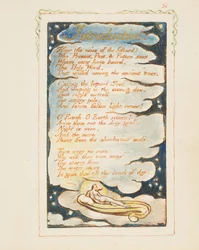 Introduction.
Hear the voice of the Bard!
Who Present, Past, & Future sees
Whose ears have heard,
The Holy Word,
That walk'd among the ancient trees.
Calling the lapsed Soul
And weeping in the evening dew:
That might controll,
The starry pole;
And fallen fallen light renew!
O Earth O Earth return!
Arise from out the dewy grass;
Night is worn,
And the morn
Rises from the slumberous mass.
Turn away no more:
Why wilt thou turn away
The starry floor
The watry shore
Is giv'n thee till the break of day.